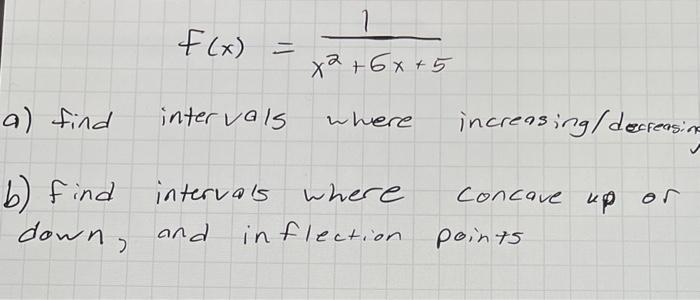 f(x) = 1 / (x² + 6x + 5)
a) find intervals where increasing/decreasing
b) find intervals where concave up or
down, and inflection points